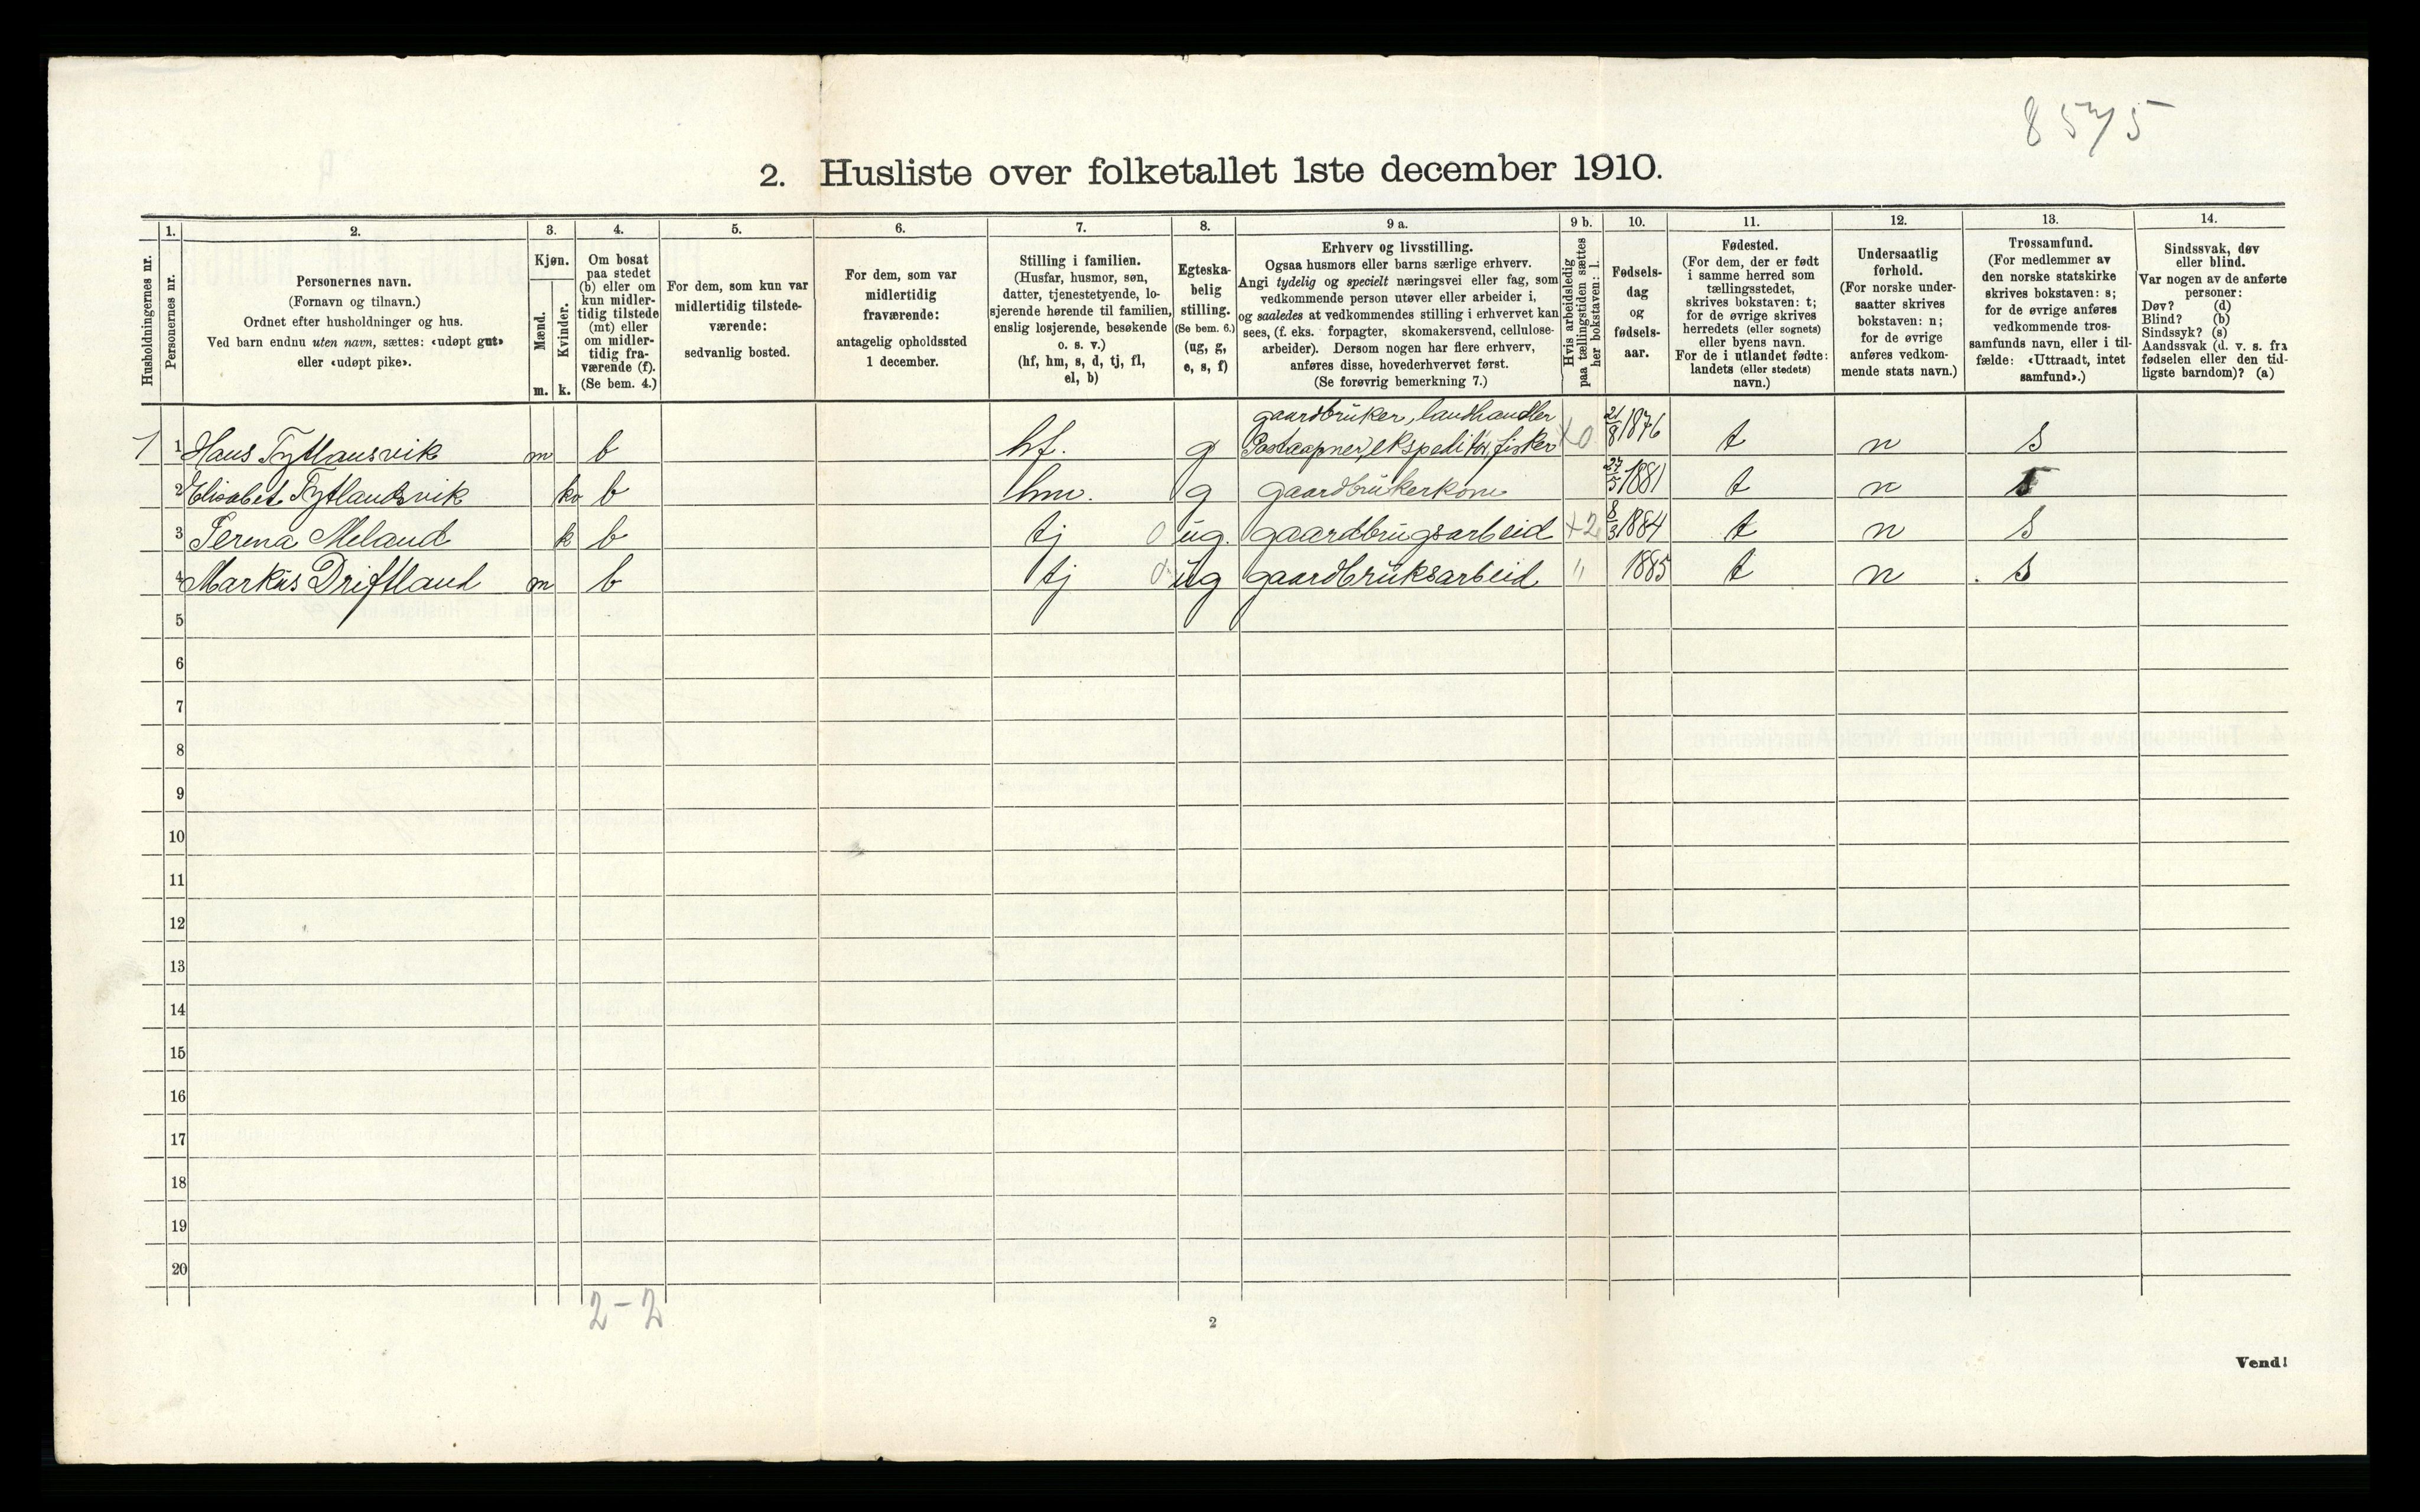 8575
2. Husliste over folketallet 1ste december 1910.
Husholdningernes nr.
1.
Personernes nr.
2.
Personernes navn.
(Fornavn og tilnavn.)
Ordnet efter husholdninger og hus.
Ved barn endnu uten navn, sættes: «udøpt gut»
eller «udøpt pike».
3.
Kjøn.
Mænd.
Kvinder.
m. k.
4.
Om bosat
paa stedet
(b) eller om
kun midler-
tidig tilstede
(mt) eller
om midler-
tidig fra-
værende (f).
(Se bem. 4.)
5.
For dem, som kun var
midlertidig tilstede-
værende:
sedvanlig bosted.
6.
For dem, som var
midlertidig
fraværende:
antagelig opholdssted
1 december.
7.
Stilling i familien.
(Husfar, husmor, søn,
datter, tjenestetyende, lo-
sjerende hørende til familien,
enslig losjerende, besøkende
o. s. v.)
(hf, hm, s, d, tj, fl,
el, b)
8.
Egteska-
belig
stilling.
(Se bem. 6.)
(ug, g,
e, s, f)
9 a.
Erhverv og livsstilling.
Ogsaa husmors eller barns særlige erhverv.
Angi tydelig og specielt næringsvei eller fag, som
vedkommende person utøver eller arbeider i,
og saaledes at vedkommendes stilling i erhvervet kan
sees, (f. eks. forpagter, skomakersvend, cellulose-
arbeider). Dersom nogen har flere erhverv,
anføres disse, hovederhvervet først.
(Se forøvrig bemerkning 7.)
9 b.
Hvis arbeidsledig
paa tællingstiden sættes
her bokstaven: l.
10.
Fødsels-
dag
og
fødsels-
aar.
11.
Fødested.
(For dem, der er født
i samme herred som
tællingsstedet,
skrives bokstaven: t;
for de øvrige skrives
herredets (eller sognets)
eller byens navn.
For de i utlandet fødte:
landets (eller stedets)
navn.)
12.
Undersaatlig
forhold.
(For norske under-
saatter skrives
bokstaven: n;
for de øvrige
anføres vedkom-
mende stats navn.)
13.
Trossamfund.
(For medlemmer av
den norske statskirke
skrives bokstaven: s;
for de øvrige anføres
vedkommende tros-
samfunds navn, eller i til-
fælde: «Uttraadt, intet
samfund».)
14.
Sindssvak, døv
eller blind.
Var nogen av de anførte
personer:
Døv? (d)
Blind? (b)
Sindssyk? (s)
Aandssvak (d. v. s. fra
fødselen eller den tid-
ligste barndom)? (a)
gaardbruker, landhandler
1 1 Hans Tytlansvik m b hf. g Postaapner, ekspeditør, fisker x0 21/8 1876 t n s
2 Elisabet Tytlandsvik kv b hm. g gaardbrukerkone 27/5 1881 t n s
3 Perma Meland k b tj 0 ug. gaardbrugsarbeid +2 8/3 1884 t n s
4 Markus Driftland m b tj 0 ug gaardbruksarbeid " 1885 t n s
5
6
7
8
9
10
11
12
13
14
15
16
17
18
19
20
2-2
2
Vend!